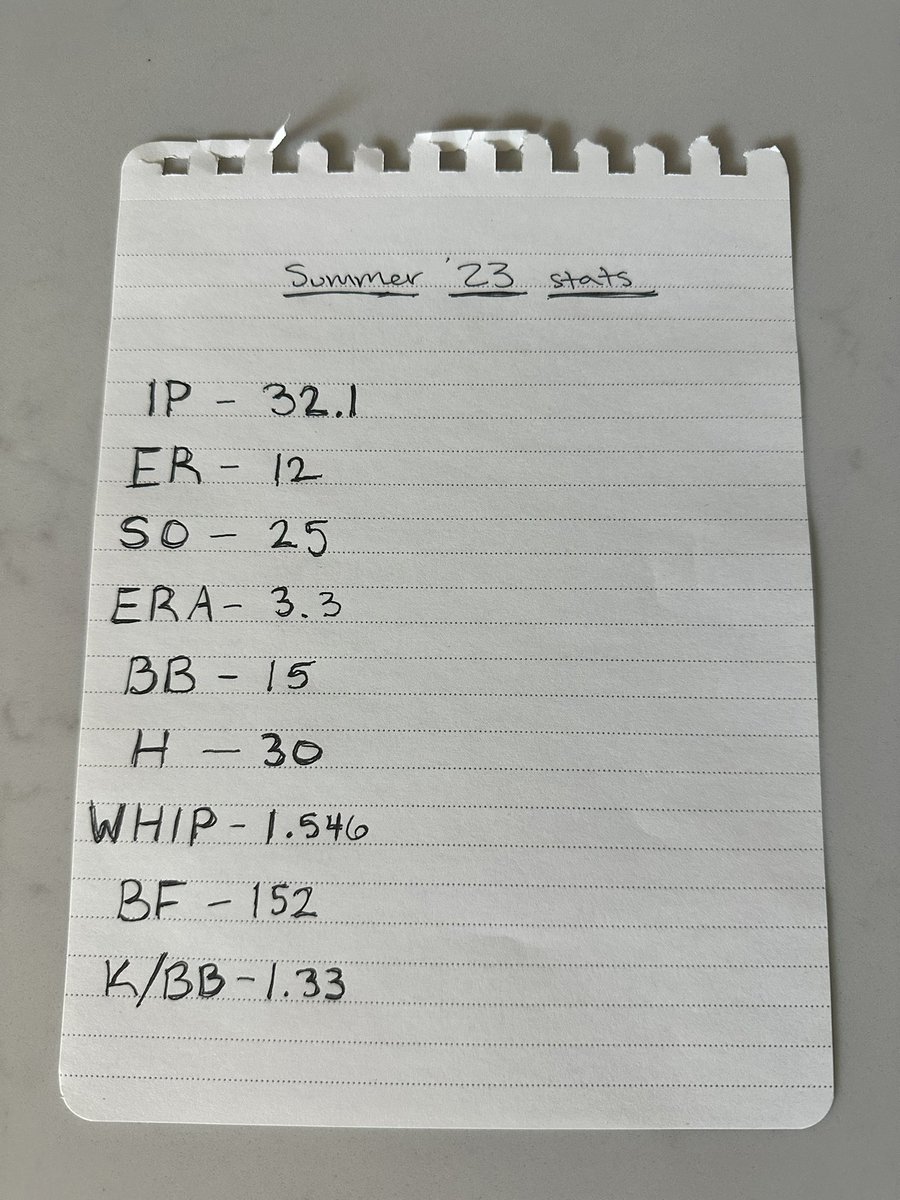 Summer '23 stats
IP - 32.1
ER - 12
SO - 25
ERA - 3.3
BB - 15
H - 30
WHIP - 1.546
BF - 152
K/BB - 1.33